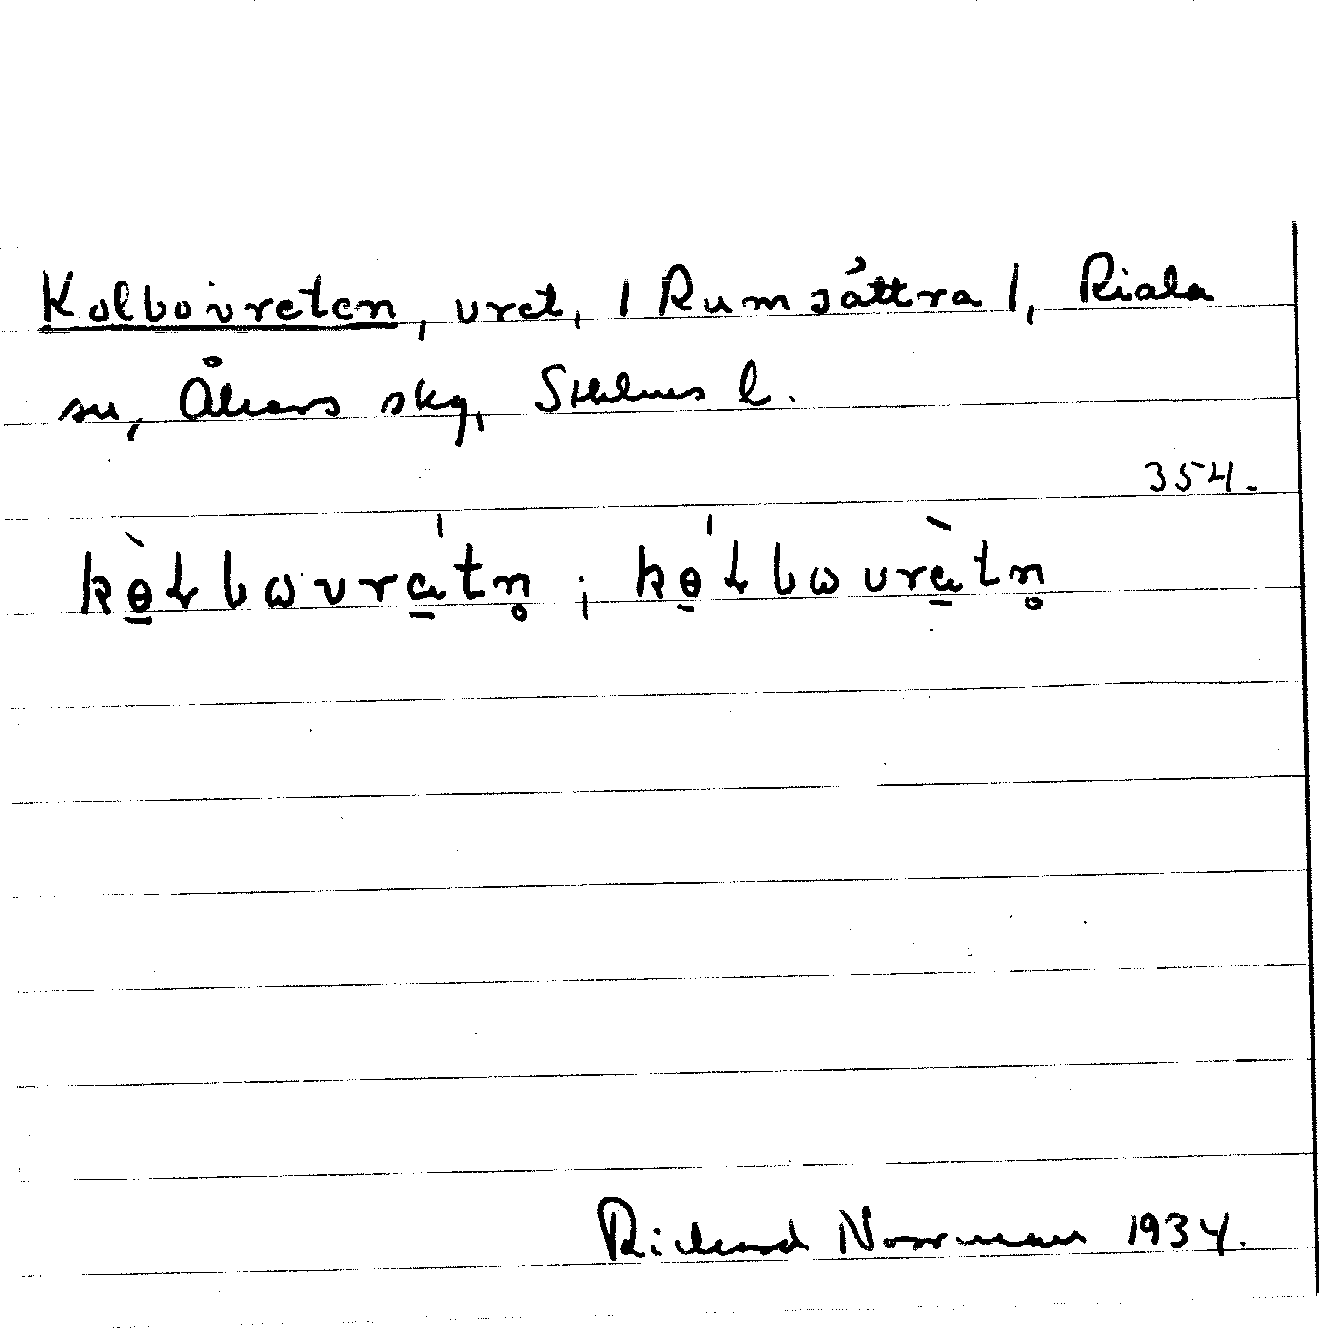 Kolbovreten, vret, / Rumsättra /, Riala
sn, Åkers skg, Sthlms l.
354.
kɵ̠̀ɫbωvra̠̍tn̥ ; kɵ̠̍ɫbωvrà̠tn̥
Richard Norrman 1934.